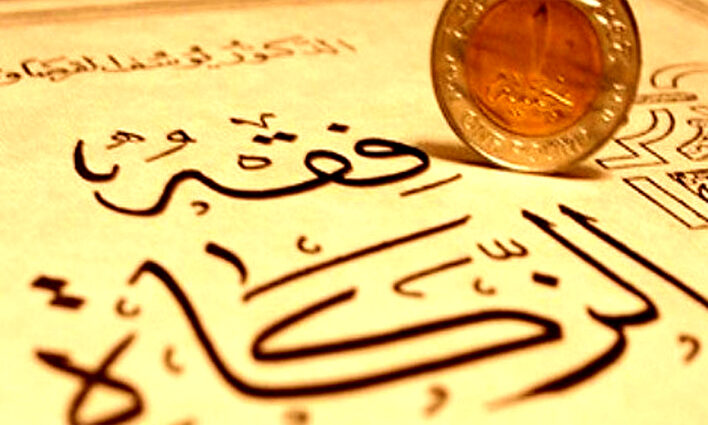 الدكتور يوسف القرضاوي
فِقْهُ
الزَّكَاة